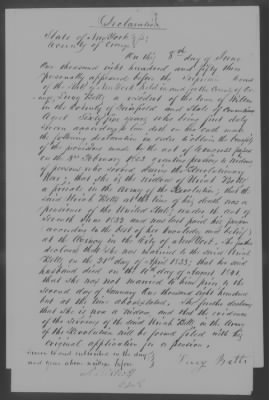 Declaration
State of New York
County of
On this 8th day of June
One thousand eight hundred and fifty three
personally appeared before the Supreme Court
of the State of New York held in and for the County of
a resident of the town of Wilton
in the County of Fairfield and State of Connecticut
Aged Sixty five years who being first duly
Sworn according to law doth on her oath make
the following declaration in order to obtain the benefits
of the provisions made by the act of Congress passed
on the 3rd February 1853 granting pensions to Widows
of persons who served during the Revolutionary
War; that she is the widow of Uriah Betts
a private in the Army of the Revolution; that the
said Uriah Betts at the time of his death was a
pensioner of the United States, under the act of
Seventh June 1832 and was last paid his pension
(according to the best of her knowledge and belief)
at the Agency in the City of New York. She further
declares that she was married to the said Uriah
Betts, on the day of April 1833; that her said
husband died on the day of August 1841
that she was not married to him prior to the
Second of January One thousand eight hundred
but at the time above stated. She further declares
that she is now a widow and that the evidence
of the Services of the said Uriah Betts, in the Army
of the Revolution will be found filed with his
original application for a pension.
Sworn to and subscribed on the day
and year above written before
Betts